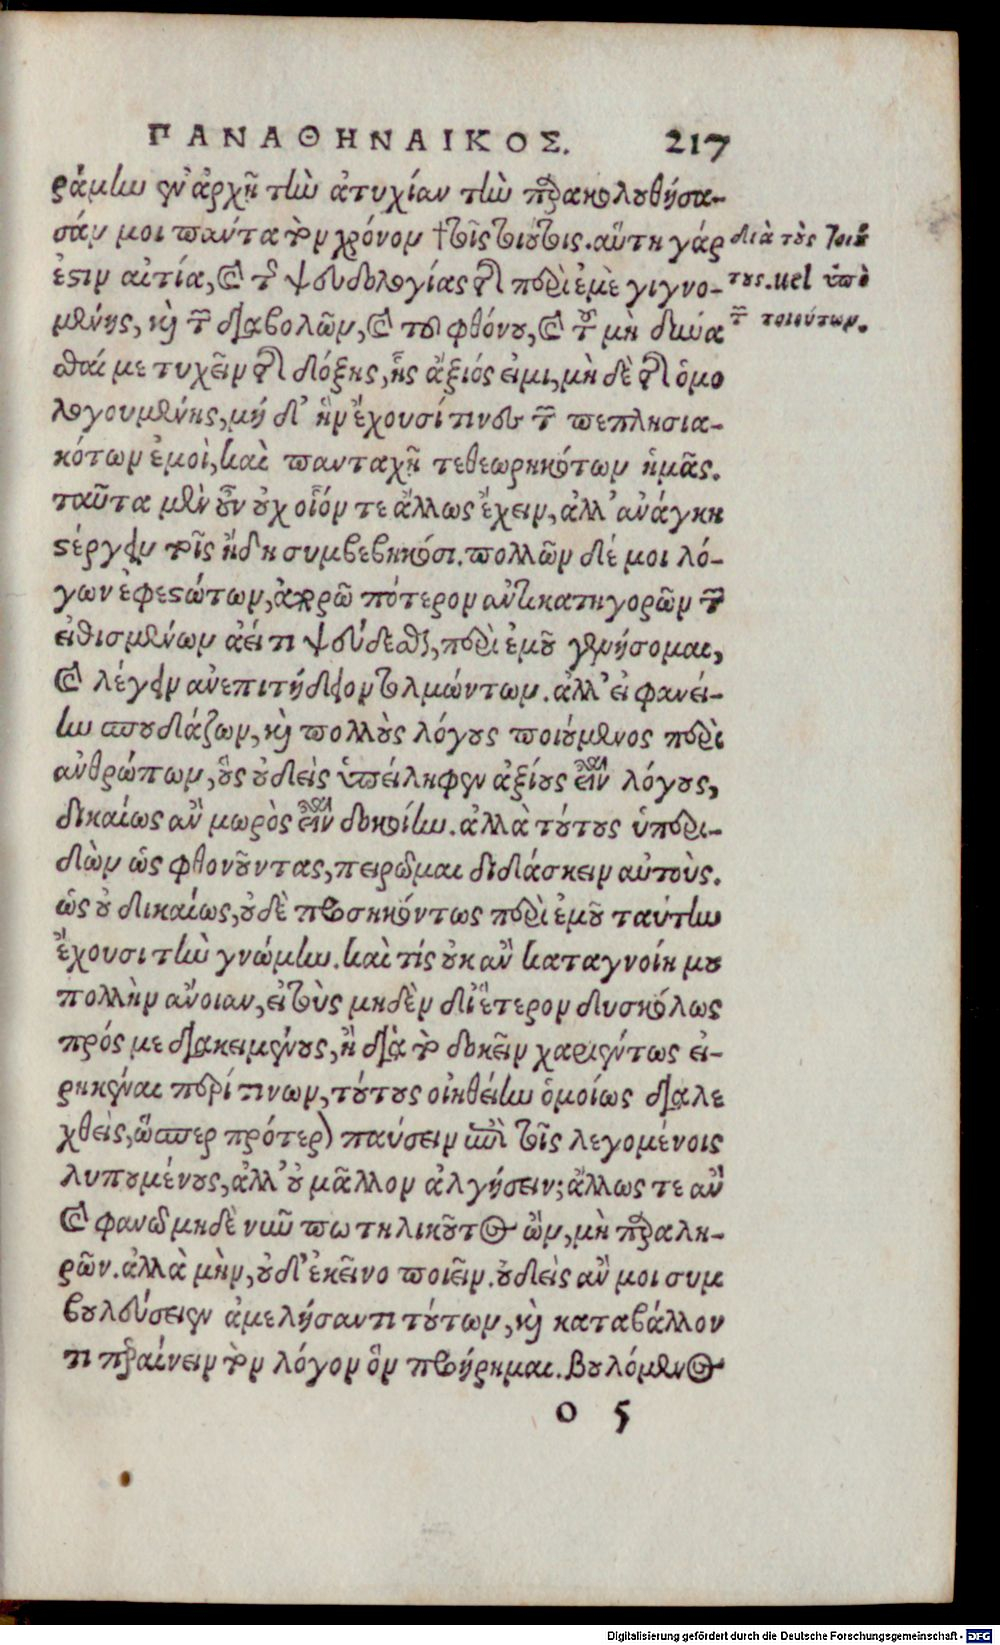 ΠΑΝΑΘΗΝΑΙΚΟΣ. 217
ράμην ἐν ἀρχῇ τὴν ἀτυχίαν τὴν παρακολουθήσα-
σάν μοι πάντα τὸν χρόνον †τοῖς τοιούτοις. αὕτη γάρ
ἐστιν αἰτία, καὶ τῆς ψευδολογίας τῆς περὶ ἐμὲ γιγνο-
μένης, καὶ τῶν διαβολῶν, καὶ τοῦ φθόνου, καὶ τοῦ μὴ δύνα
σθαί με τυχεῖν τῆς δόξης, ἧς ἄξιός εἰμι, μὴ δὲ τῆς ὁμο
λογουμένης, μή δ' ἣν ἔχουσί τινες τῶν πεπλησια-
κότων ἐμοὶ, καὶ πανταχῇ τεθεωρηκότων ἡμᾶς.
ταῦτα μὲν οὖν οὐχ οἷόν τε ἄλλως ἔχειν, ἀλλ' ἀνάγκη
στέργειν τοῖς ἤδη συμβεβηκόσι. πολλῶν δέ μοι λό-
γων ἐφεστώτων, ἀπορῶ πότερον ἀντικατηγορῶν τῶν
εἰθισμένων ἀεί τι ψεύδεσθαι, περὶ ἐμοῦ γενήσομαι,
καὶ λέγειν ἀνεπιτήδειον τολμώντων. ἀλλ' εἰ φανεί-
ην σπουδάζων, καὶ πολλοὺς λόγους ποιούμενος περὶ
ἀνθρώπων, οὓς οὐδεὶς ὑπείληφεν ἀξίους εἶναι λόγους,
δικαίως ἂν μωρὸς εἶναι δοκοίην. ἀλλὰ τούτους ὑπερι-
δὼν ὡς φθονοῦντας, πειρῶμαι διδάσκειν αὐτοὺς.
ὡς οὐ δικαίως, οὐδὲ προσηκόντως περὶ ἐμοῦ ταύτην
ἔχουσι τὴν γνώμην. καὶ τίς οὐκ ἂν καταγνοίη μου
πολλὴν ἄνοιαν, εἰ τοὺς μηδὲν δι' ἕτερον δυσκόλως
πρός με διακειμένους, ἢ διὰ τὸ δοκεῖν χαριέντως εἰ-
ρηκέναι περί τινων, τούτους οἰηθείην ὁμοίως διαλε
χθεὶς, ὥσπερ πρότερον παύσειν ἐπὶ τοῖς λεγομένοις
λυπουμένους, ἀλλ' οὐ μᾶλλον ἀλγήσειν; ἄλλως τε ἂν
καὶ φανῶ μηδὲ νῦν πω τηλικοῦτος ὢν, μὴ παραλη-
ρῶν. ἀλλὰ μὴν, οὐδ' ἐκεῖνο ποιεῖν. οὐδεὶς ἄν μοι συμ
βουλεύσειεν ἀμελήσαντι τούτων, καὶ καταβάλλον
τι περαίνειν τὸν λόγον ὃν προῄρημαι. βουλόμενος
o 5
διὰ τοὺς τοιού
τους. uel ὑπὸ
τῶν τοιούτων.
Digitalisierung gefördert durch die Deutsche Forschungsgemeinschaft - DFG